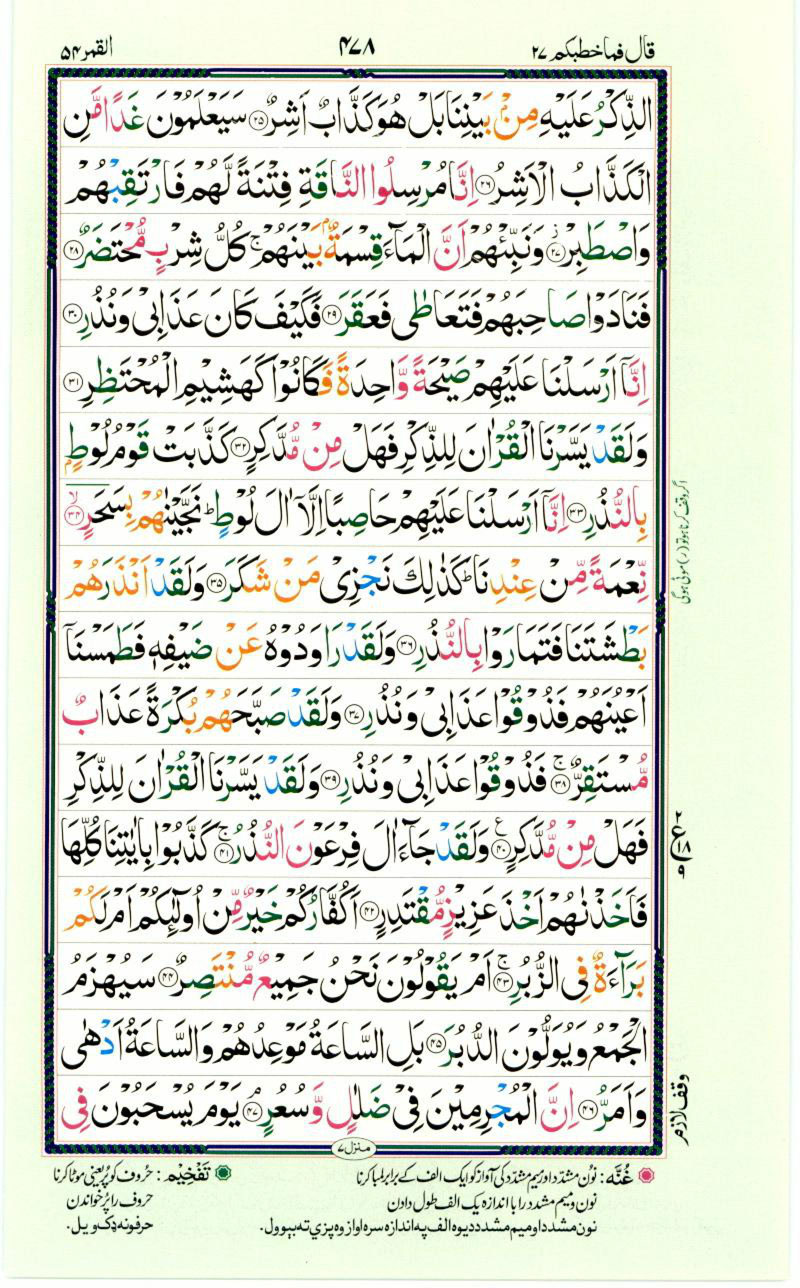 قال فما خطبکم ۲۷ ۴۷۸ القمر ۵۴
الذِّكْرُ عَلَيْهِ مِنْۢ بَيْنِنَا بَلْ هُوَ كَذَّابٌ اَشِرٌ ﴿۲۵﴾ سَيَعْلَمُوْنَ غَدًا مَّنِ
الْكَذَّابُ الْاَشِرُ ﴿۲۶﴾ اِنَّا مُرْسِلُوا النَّاقَةِ فِتْنَةً لَّهُمْ فَارْتَقِبْهُمْ
وَاصْطَبِرْ ﴿۲۷﴾ؗ وَنَبِّئْهُمْ اَنَّ الْمَآءَ قِسْمَةٌۢ بَيْنَهُمْ ۚ كُلُّ شِرْبٍ مُّحْتَضَرٌ ﴿۲۸﴾
فَنَادَوْا صَاحِبَهُمْ فَتَعَاطٰى فَعَقَرَ ﴿۲۹﴾ فَكَيْفَ كَانَ عَذَابِيْ وَنُذُرِ ﴿۳۰﴾
اِنَّآ اَرْسَلْنَا عَلَيْهِمْ صَيْحَةً وَّاحِدَةً فَكَانُوْا كَهَشِيْمِ الْمُحْتَظِرِ ﴿۳۱﴾
وَلَقَدْ يَسَّرْنَا الْقُرْاٰنَ لِلذِّكْرِ فَهَلْ مِنْ مُّدَّكِرٍ ﴿۳۲﴾ كَذَّبَتْ قَوْمُ لُوْطٍۢ
بِالنُّذُرِ ﴿۳۳﴾ اِنَّآ اَرْسَلْنَا عَلَيْهِمْ حَاصِبًا اِلَّآ اٰلَ لُوْطٍ ؕ نَجَّيْنٰهُمْ بِسَحَرٍ ﴿۳۴﴾ۙ
نِّعْمَةً مِّنْ عِنْدِنَا ؕ كَذٰلِكَ نَجْزِيْ مَنْ شَكَرَ ﴿۳۵﴾ وَلَقَدْ اَنْذَرَهُمْ
بَطْشَتَنَا فَتَمَارَوْا بِالنُّذُرِ ﴿۳۶﴾ وَلَقَدْ رَاوَدُوْهُ عَنْ ضَيْفِهٖ فَطَمَسْنَآ
اَعْيُنَهُمْ فَذُوْقُوْا عَذَابِيْ وَنُذُرِ ﴿۳۷﴾ وَلَقَدْ صَبَّحَهُمْ بُكْرَةً عَذَابٌ
مُّسْتَقِرٌّ ﴿۳۸﴾ۚ فَذُوْقُوْا عَذَابِيْ وَنُذُرِ ﴿۳۹﴾ وَلَقَدْ يَسَّرْنَا الْقُرْاٰنَ لِلذِّكْرِ
فَهَلْ مِنْ مُّدَّكِرٍ ﴿۴۰﴾ وَلَقَدْ جَآءَ اٰلَ فِرْعَوْنَ النُّذُرُ ﴿۴۱﴾ۚ كَذَّبُوْا بِاٰيٰتِنَا كُلِّهَا
فَاَخَذْنٰهُمْ اَخْذَ عَزِيْزٍ مُّقْتَدِرٍ ﴿۴۲﴾ اَكُفَّارُكُمْ خَيْرٌ مِّنْ اُولٰٓئِكُمْ اَمْ لَكُمْ
بَرَآءَةٌ فِي الزُّبُرِ ﴿۴۳﴾ۚ اَمْ يَقُوْلُوْنَ نَحْنُ جَمِيْعٌ مُّنْتَصِرٌ ﴿۴۴﴾ سَيُهْزَمُ
الْجَمْعُ وَيُوَلُّوْنَ الدُّبُرَ ﴿۴۵﴾ بَلِ السَّاعَةُ مَوْعِدُهُمْ وَالسَّاعَةُ اَدْهٰى
وَاَمَرُّ ﴿۴۶﴾ اِنَّ الْمُجْرِمِيْنَ فِيْ ضَلٰلٍ وَّسُعُرٍ ﴿۴۷﴾ۘ يَوْمَ يُسْحَبُوْنَ فِي
اگر وقف کرنا ہو تو (ر) موٹی ہوگی
۲
ع
۱۸
۹
وقف لازم
منزل ۷
غُنَّه: نون مشدّد اور میم مشدد کی آواز کو ایک الف کے برابر لمبا کرنا تَفْخِيْم: حروف کو پُر یعنی موٹا کرنا
نون و میم مشدد را با اندازه یک الف طول دادن حروف را پُر خواندن
نون مشدد او میم مشدد دیوه الف په اندازه سره اواز وه پزي ته بېوول. حرفونه ډک ویل.